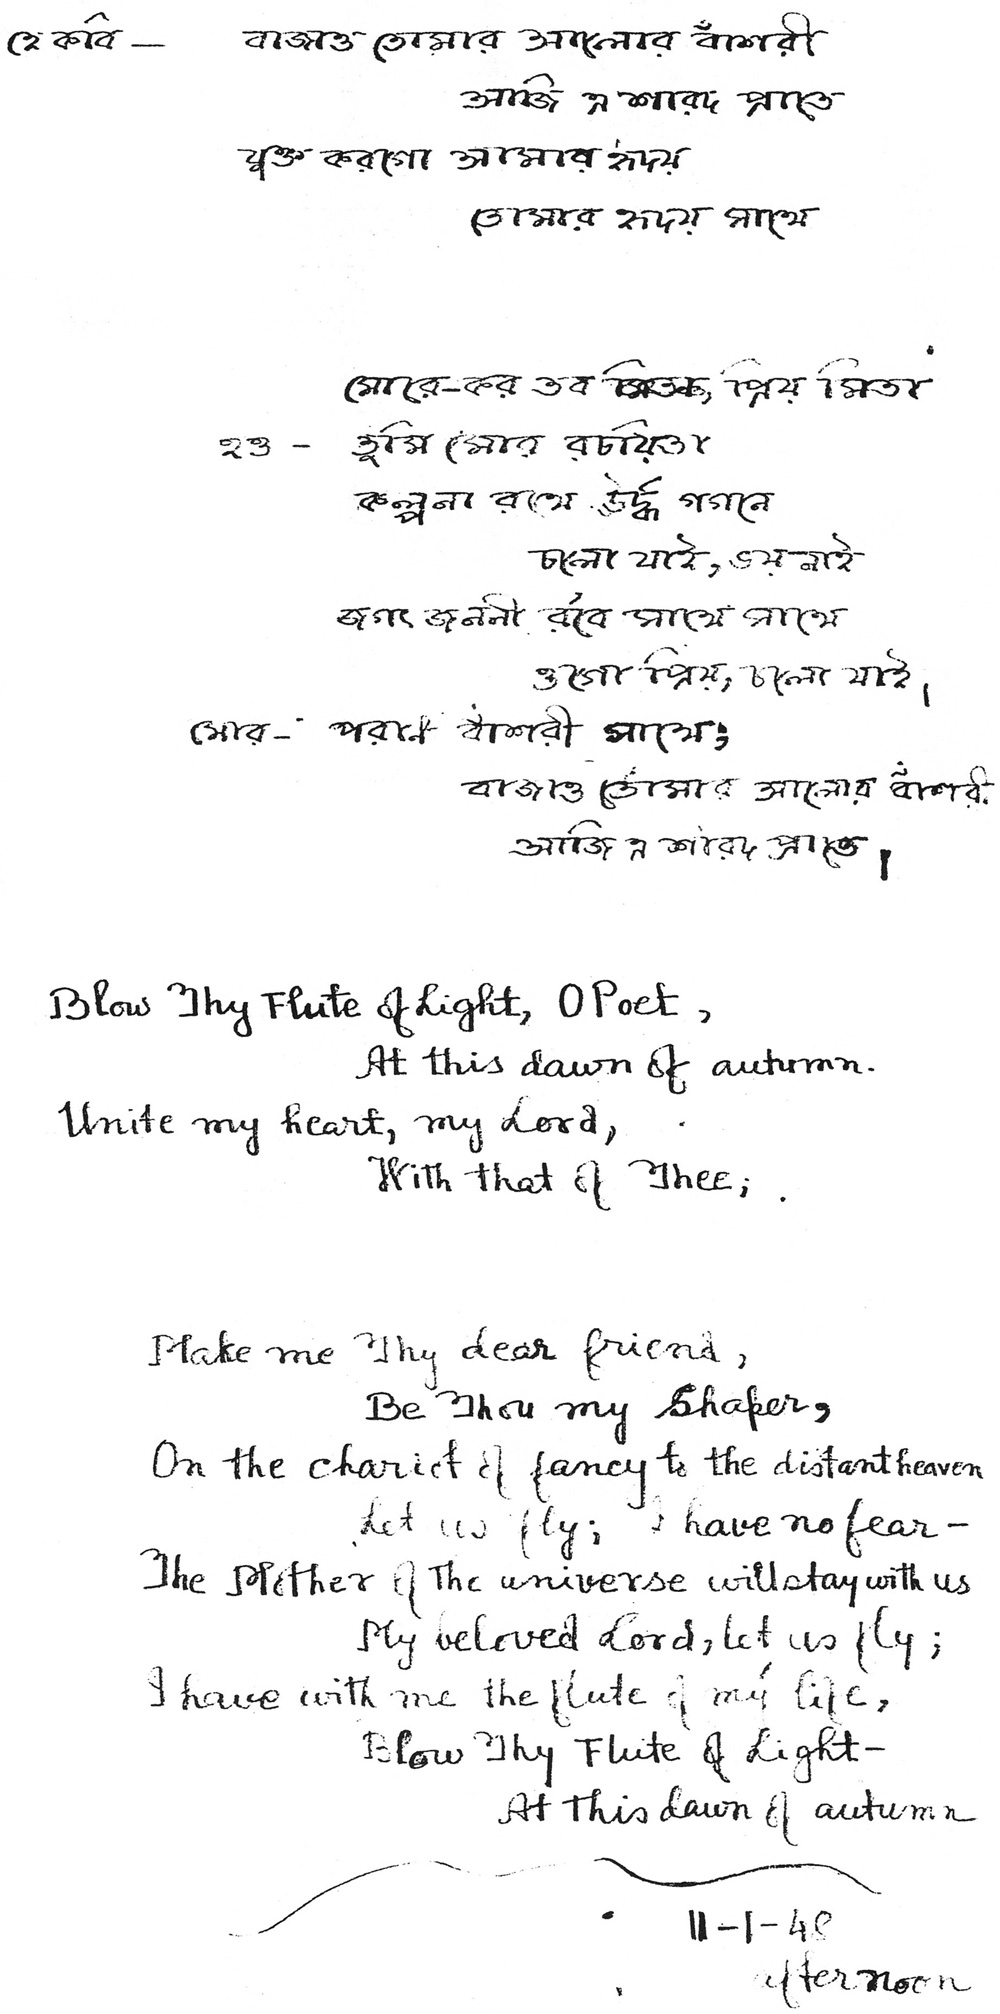 হে কবি — বাজাও তোমার আলোর বাঁশরী
আজি এ শারদ প্রাতে
যুক্ত করগো আমার হৃদয়
তোমার হৃদয় সাথে
মোরে-কর তব প্রিয় মিতা
হও - তুমি মোর রচয়িতা
কল্পনা রথে উর্দ্ধ গগনে
চলো যাই, ভয় নাই
জগৎ জননী র'বে সাথে সাথে
ওগো প্রিয়, চলো যাই।
মোর- পরাণ বাঁশরী সাথে;
বাজাও তোমার আলোর বাঁশরী
আজি এ শারদ প্রাতে।
Blow Thy Flute of Light, O Poet,
At this dawn of autumn.
Unite my heart, my Lord,
With that of Thee;
Make me Thy dear friend,
Be Thou my Shaper,
On the chariot of fancy to the distant heaven
Let us fly; I have no fear –
The Mother of the universe will stay with us
My beloved Lord, let us fly;
I have with me the flute of my life,
Blow Thy Flute of Light –
At this dawn of autumn
11-1-48
afternoon